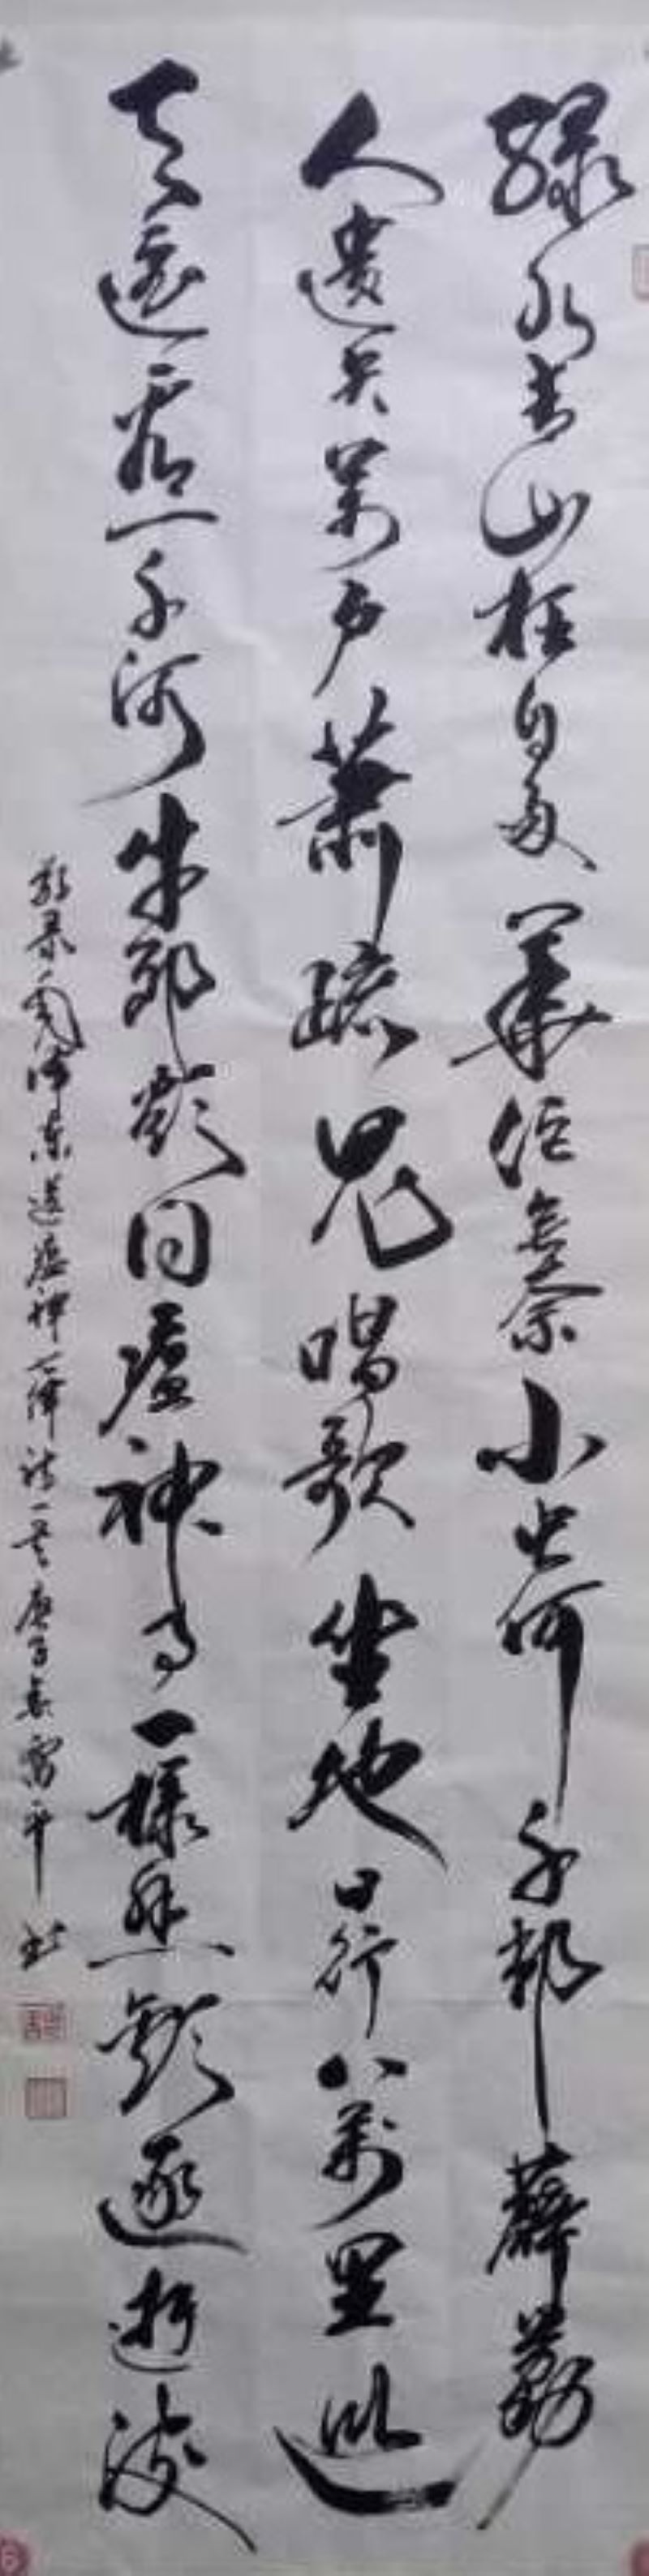 綠水青山枉自多華佗無奈小虫何千邨薜荔
人遺矢萬户蕭疏鬼唱歌坐地日行八萬里巡
天遥看一千河牛郎欲问瘟神事一樣悲歡逐逝波
敬录毛泽东送瘟神七律诗一首庚子春雷平书